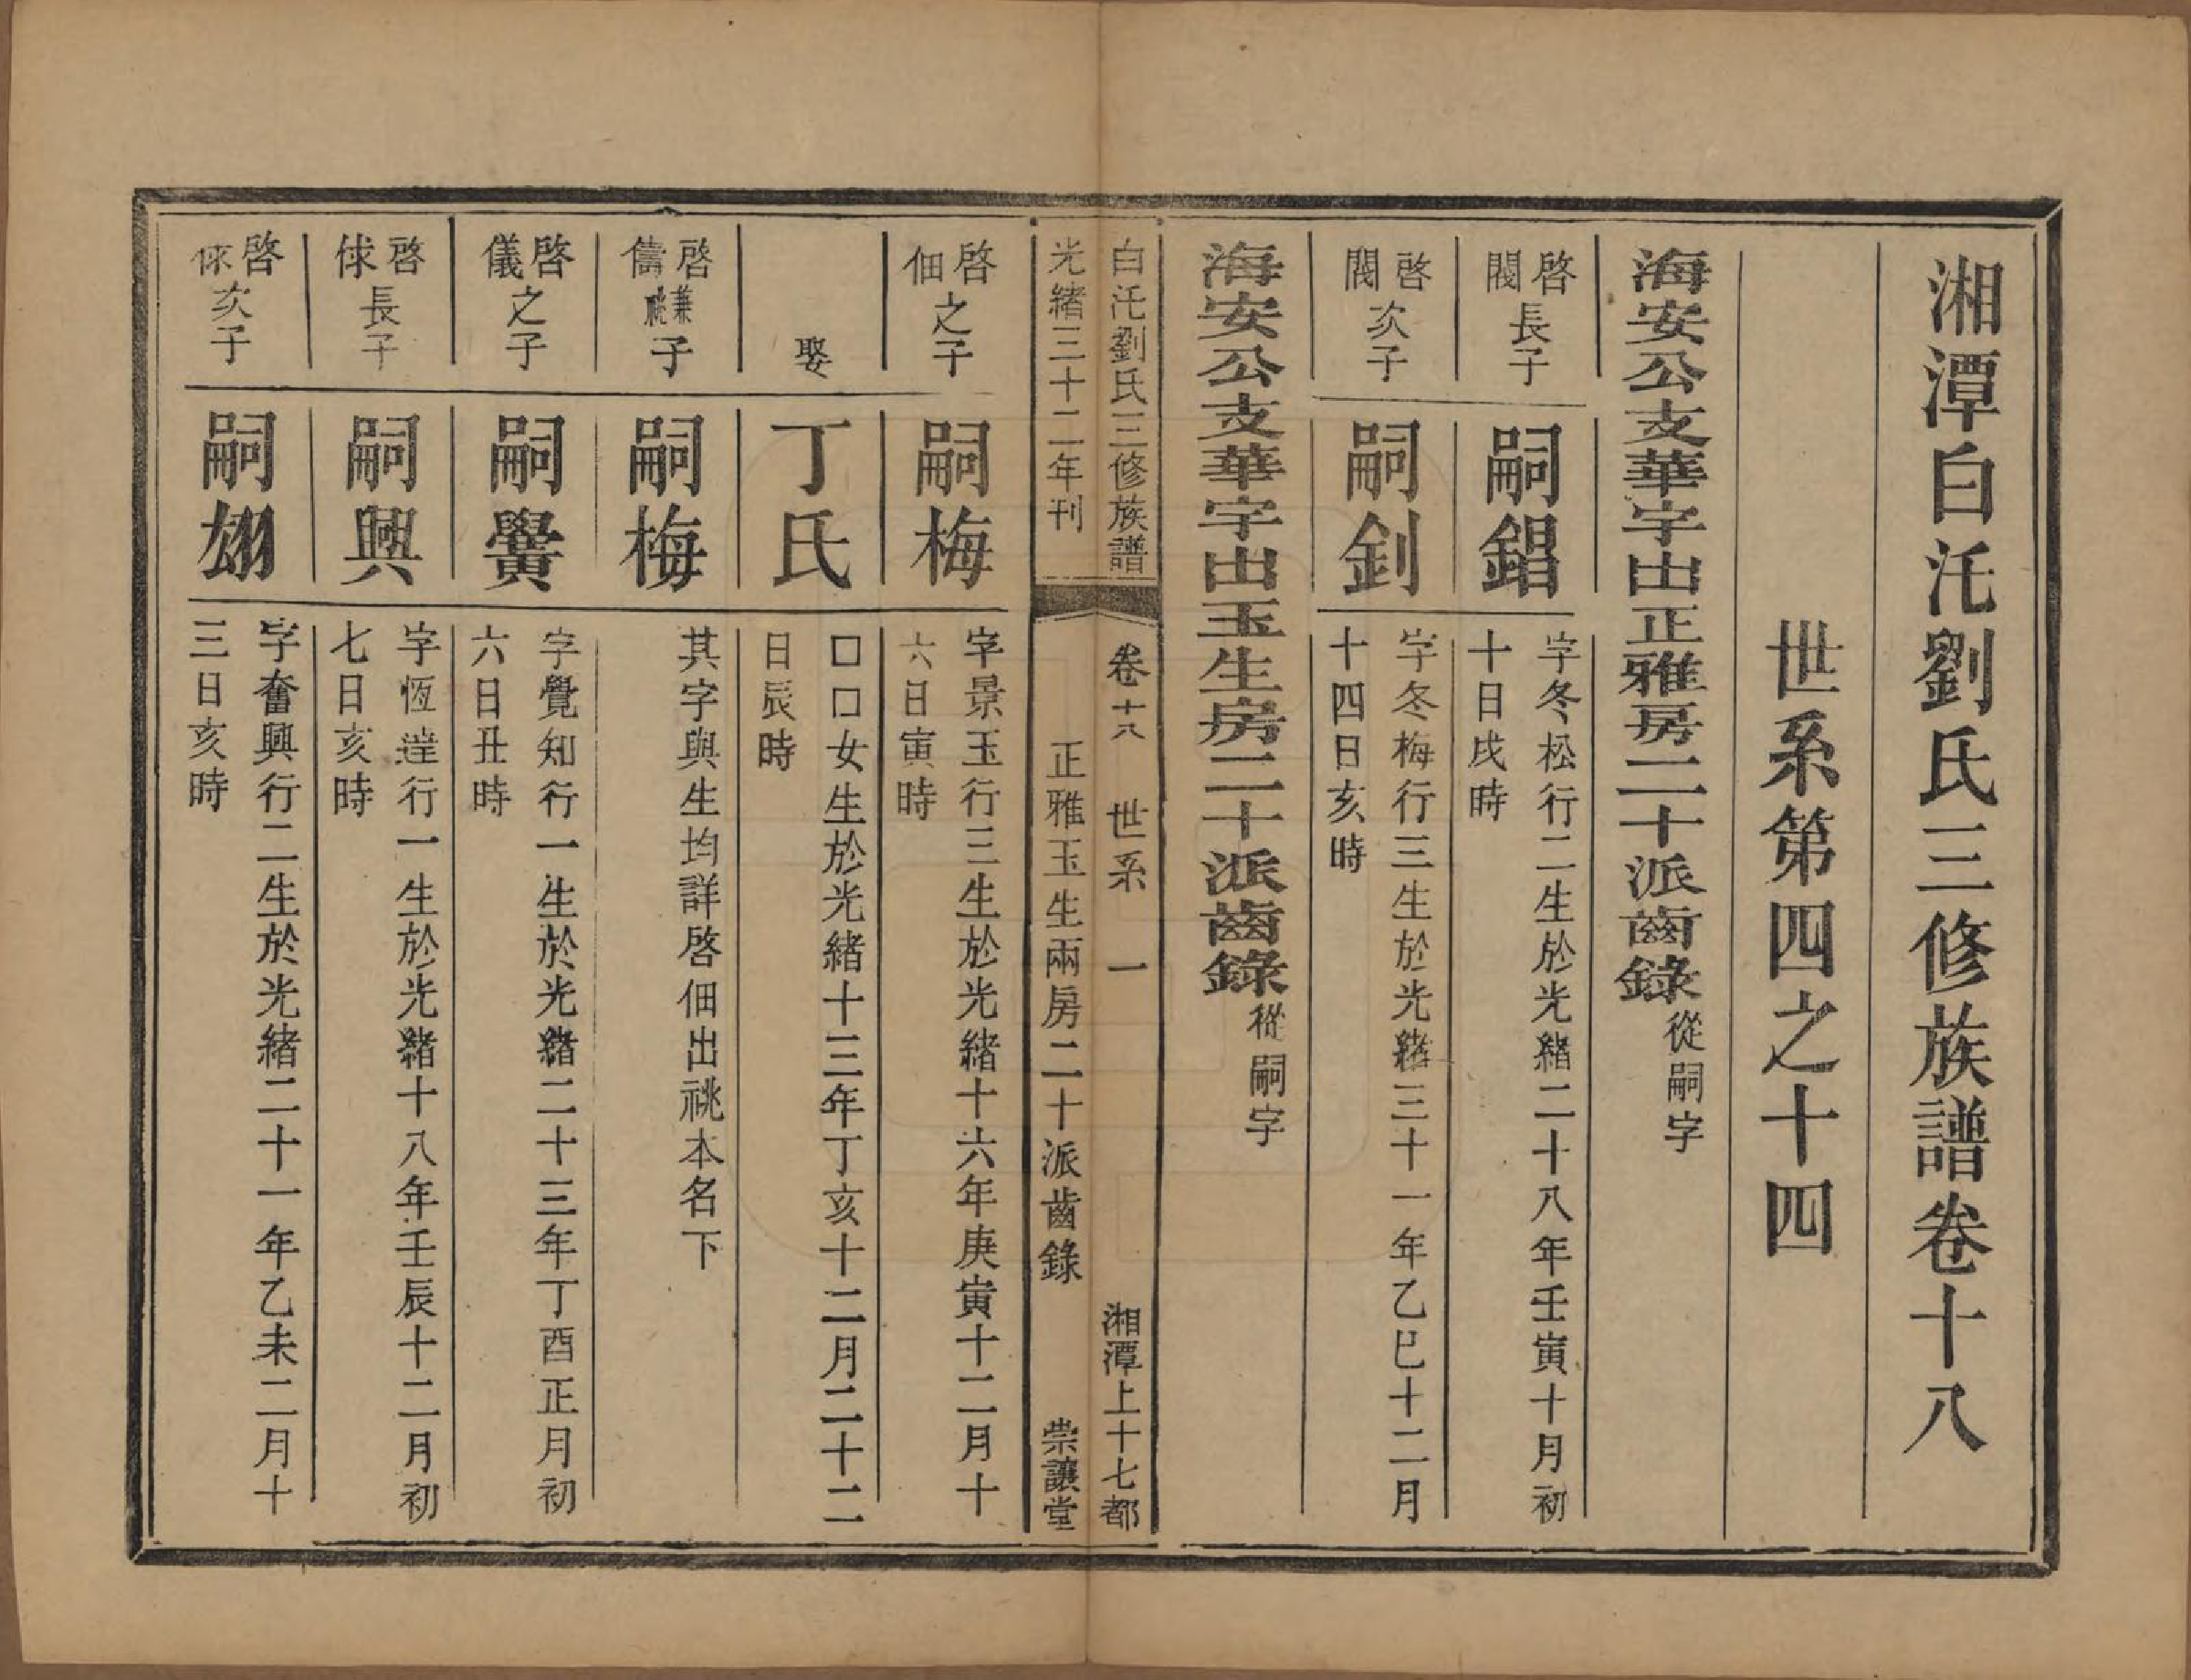 湘潭白汑劉氏三修族譜卷十八
世系第四之十四
海安公支華字出正雅房二十派齒錄從嗣字
啓閥長子
嗣錩
字冬松行二生於光緒二十八年壬寅十月初
十日戌時
啓閥次子
嗣釗
字冬梅行三生於光緒三十一年乙巳十二月
十四日亥時
海安公支華字出玉生房二十派齒錄從嗣字
白汑劉氏三修族譜
卷十八 世系 一
湘潭上十七都
光緒三十二年刊
正雅玉生兩房二十派齒錄
崇讓堂
啓佃之子
嗣梅
字景玉行三生於光緒十六年庚寅十二月十
六日寅時
娶
丁氏
口口女生於光緒十三年丁亥十二月二十二
日辰時
啓儔兼祧子
嗣梅
其字與生均詳啓佃出祧本名下
啓儀之子
嗣黌
字覺知行一生於光緒二十三年丁酉正月初
六日丑時
啓俅長子
嗣興
字恆達行一生於光緒十八年壬辰十二月初
七日亥時
啓俅次子
嗣翃
字奮興行二生於光緒二十一年乙未二月十
三日亥時